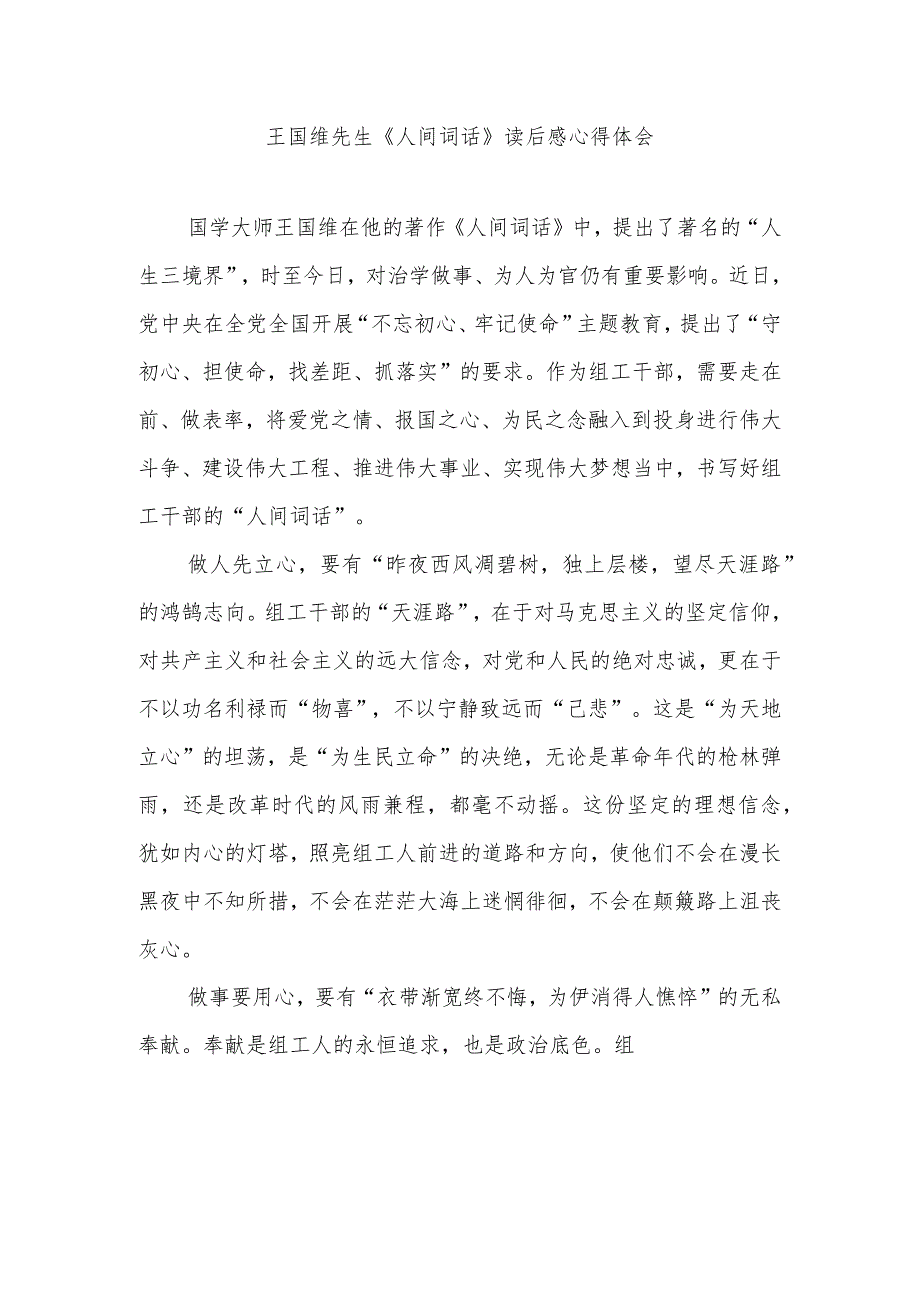 王国维先生《人间词话》读后感心得体会
国学大师王国维在他的著作《人间词话》中，提出了著名的“人
生三境界”，时至今日，对治学做事、为人为官仍有重要影响。近日，
党中央在全党全国开展“不忘初心、牢记使命”主题教育，提出了“守
初心、担使命，找差距、抓落实”的要求。作为组工干部，需要走在
前、做表率，将爱党之情、报国之心、为民之念融入到投身进行伟大
斗争、建设伟大工程、推进伟大事业、实现伟大梦想当中，书写好组
工干部的“人间词话”。
做人先立心，要有“昨夜西风凋碧树，独上层楼，望尽天涯路”
的鸿鹄志向。组工干部的“天涯路”，在于对马克思主义的坚定信仰，
对共产主义和社会主义的远大信念，对党和人民的绝对忠诚，更在于
不以功名利禄而“物喜”，不以宁静致远而“己悲”。这是“为天地
立心”的坦荡，是“为生民立命”的决绝，无论是革命年代的枪林弹
雨，还是改革时代的风雨兼程，都毫不动摇。这份坚定的理想信念，
犹如内心的灯塔，照亮组工人前进的道路和方向，使他们不会在漫长
黑夜中不知所措，不会在茫茫大海上迷惘徘徊，不会在颠簸路上沮丧
灰心。
做事要用心，要有“衣带渐宽终不悔，为伊消得人憔悴”的无私
奉献。奉献是组工人的永恒追求，也是政治底色。组